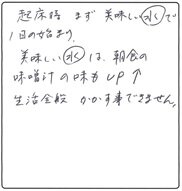 起床時 まず 美味しい水で
1日の始まり,
美味しい水は、朝食の
味噌汁の味もUP↑
生活全般 かかす事できません,